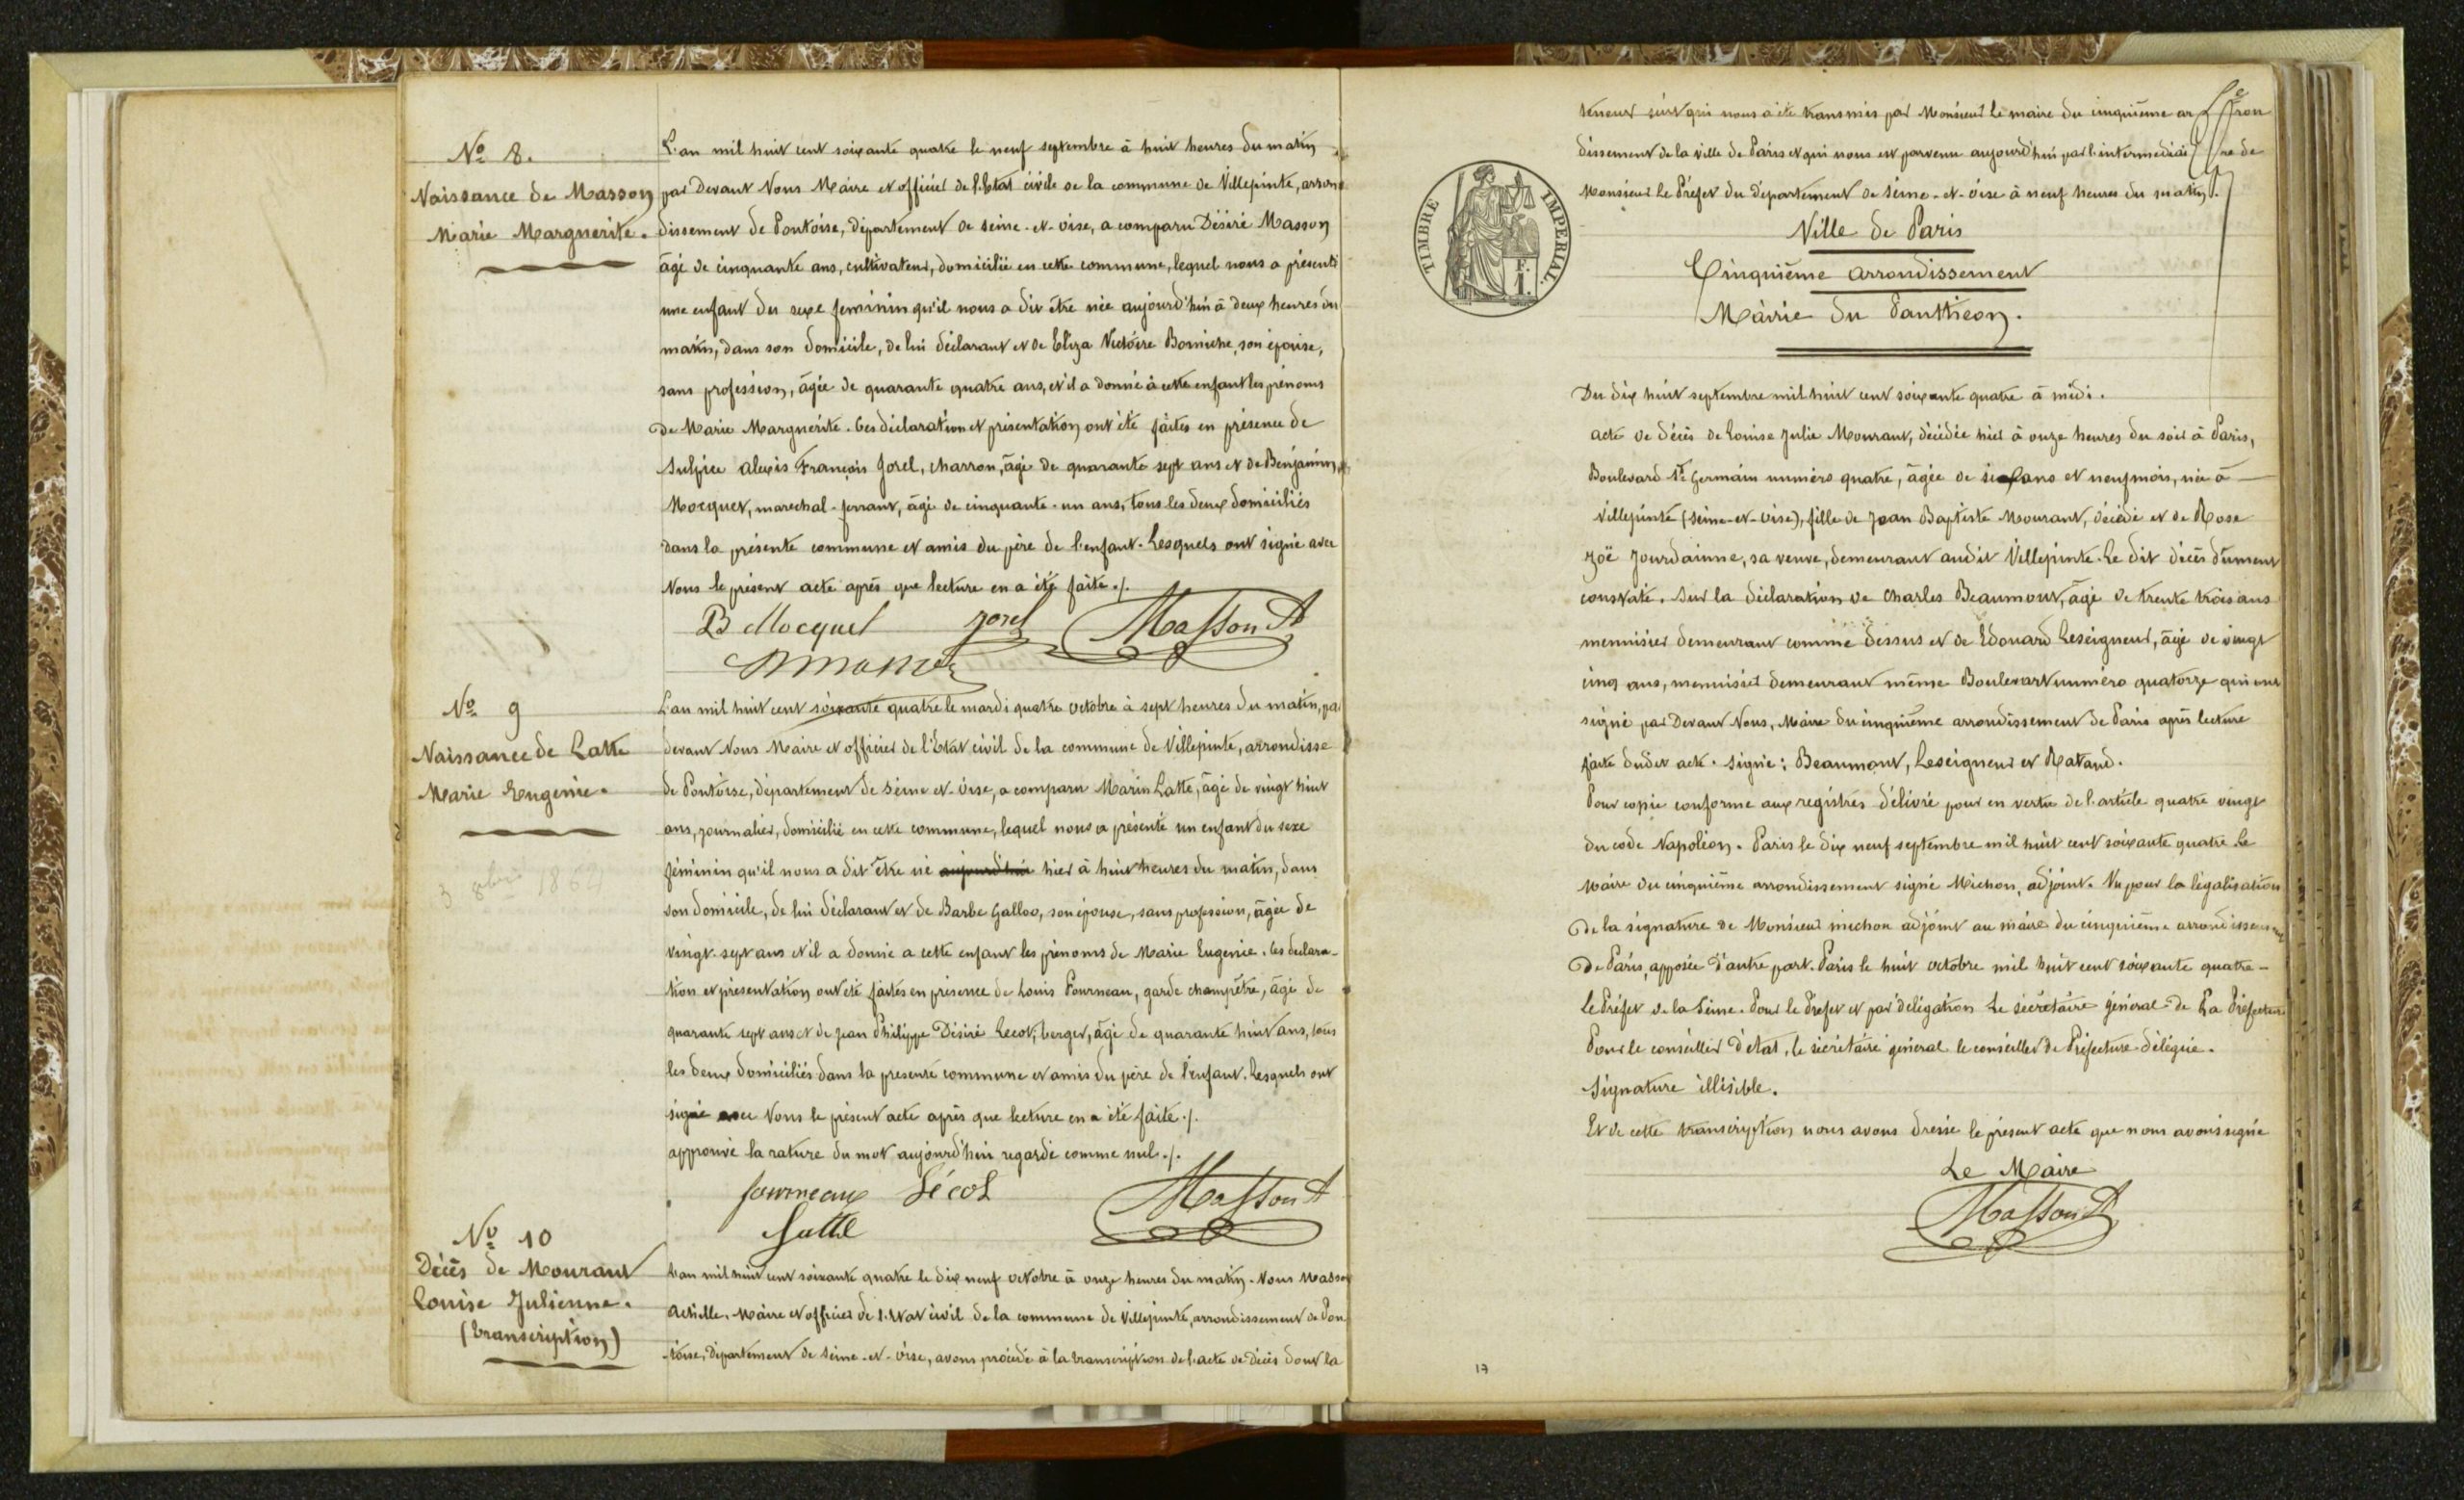 No 8.
Naissance de Masson
Marie Marguerite.
L'an mil huit cent soixante quatre le neuf septembre à huit heures du matin
par devant Nous Maire et officier de l'Etat civile de la commune de Villepinte, arron
dissement de Pontoise, département de seine-et-oise, a comparu Désiré Masson
âgé de cinquante ans, cultivateur, domicilié en cette commune, lequel nous a présenté
une enfant du sexe feminin qu'il nous a dit être née aujourd'hui à deux heures du
matin, dans son domicile, de lui déclarant et de Eliza Victoire Borniche, son épouse,
sans profession, âgée de quarante quatre ans, et il a donné à cette enfant les prénoms
de Marie Marguerite. Ces déclaration et présentation ont été faites en présence de
Sulpice Alexis François Jorel, charron, âgé de quarante sept ans et de Benjamin
Mocquet, marechal-ferrant, âgé de cinquante-un ans, tous les deux domiciliés
dans la présente commune et amis du père de l'enfant. Lesquels ont signé avec
Nous le présent acte après que lecture en a été faite ./.
B Mocquet Jorel Masson A
No 9
Naissance de Latte
Marie Eugenie.
3 8bre 1864
L'an mil huit cent soixante quatre le mardi quatre octobre à sept heures du matin, pa
devant Nous Maire et officier de l'Etat civil de la commune de Villepinte, arrondisse
de Pontoise, département de Seine-et-Oise, a comparu Marin Latte, âgé de vingt huit
ans, journalier, domicilié en cette commune, lequel nous a présenté un enfant du sexe
féminin qu'il nous a dit être né aujourd'hui hier à huit heures du matin, dans
son domicile, de lui déclarant et de Barbe Galloo, son épouse, sans profession, âgée de
vingt-sept ans et il a donné a cette enfant les prénoms de Marie Eugenie. Ces declara-
tion et présentation ont été faites en présence de Louis Fourneau, garde champêtre, âgé de
quarante sept ans et de Jean Philippe Désiré Lecot, berger, âgé de quarante huit ans, tous
les deux domiciliés dans la présente commune et amis du père de l'enfant. Lesquels ont
signé avec Nous le présent acte après que lecture en a été faite ./.
approuvé la rature du mot aujourd'hui regardé comme nul ./.
fourneaux Lécot Masson A
Latte
No 10
Décès de Mourant
Louise Julienne.
(transcription)
L'an mil huit cent soixante quatre le dix neuf octobre à onze heures du matin. Nous Masson
Achille, Maire et officier de l'Etat civil de la commune de Villepinte, arrondissement de Pon
-toise, département de Seine-et-Oise, avons procédé à la transcription de l'acte de décès dont la
teneur suit qui nous a été transmis par Monsieur le maire du cinquième ar ron
dissement de la ville de Paris et qui nous est parvenu aujourd'hui par l'intermediai re de
Monsieur le Préfet du département de Seine-et-Oise à neuf heures du matin.
TIMBRE IMPERIAL.
Ville de Paris
Cinquième arrondissement
Mairie du Panthéon.
Du dix huit septembre mil huit cent soixante quatre à midi.
acte de décès de Louise Julie Mourant, décédée hier à onze heures du soir à Paris,
Boulevard St Germain numéro quatre, âgée de six ans et neuf mois, née à
Villepinte (Seine-et-Oise), fille de Jean Baptiste Mourant, décédé et de Rose
Zoë Jourdainne, sa veuve, demeurant audit Villepinte. Le dit décès dûment
constaté. Sur la déclaration de Charles Beaumont, âgé de trente trois ans
menuisier demeurant comme dessus et de Edouard Leseigneur, âgé de vingt
cinq ans, menuisier demeurant même Boulevart numéro quatorze qui ont
signé par Devant Nous, Maire du cinquième arrondissement de Paris après lecture
faite dudit acte. Signé: Beaumont, Leseigneur et Rataud.
Pour copie conforme aux registres délivré pour en vertu de l'article quatre vingt
du code Napoléon. Paris le dix neuf septembre mil huit cent soixante quatre. Le
Maire du cinquième arrondissement signé Michon, adjoint. Vu pour la légalisation
de la signature de Monsieur michon adjoint au maire du cinquième arrondissement
de Paris, apposée d'autre part. Paris le huit octobre mil huit cent soixante quatre-
Le Préfet de la Seine. Pour le Préfet et par délégation Le secrétaire général de La Préfecture
Pour le conseiller d'état, le secrétaire général le conseiller de Préfecture délégué.
Signature illisible.
Et de cette transcription nous avons dressé le présent acte que nous avons signé
Le Maire
Masson A
17